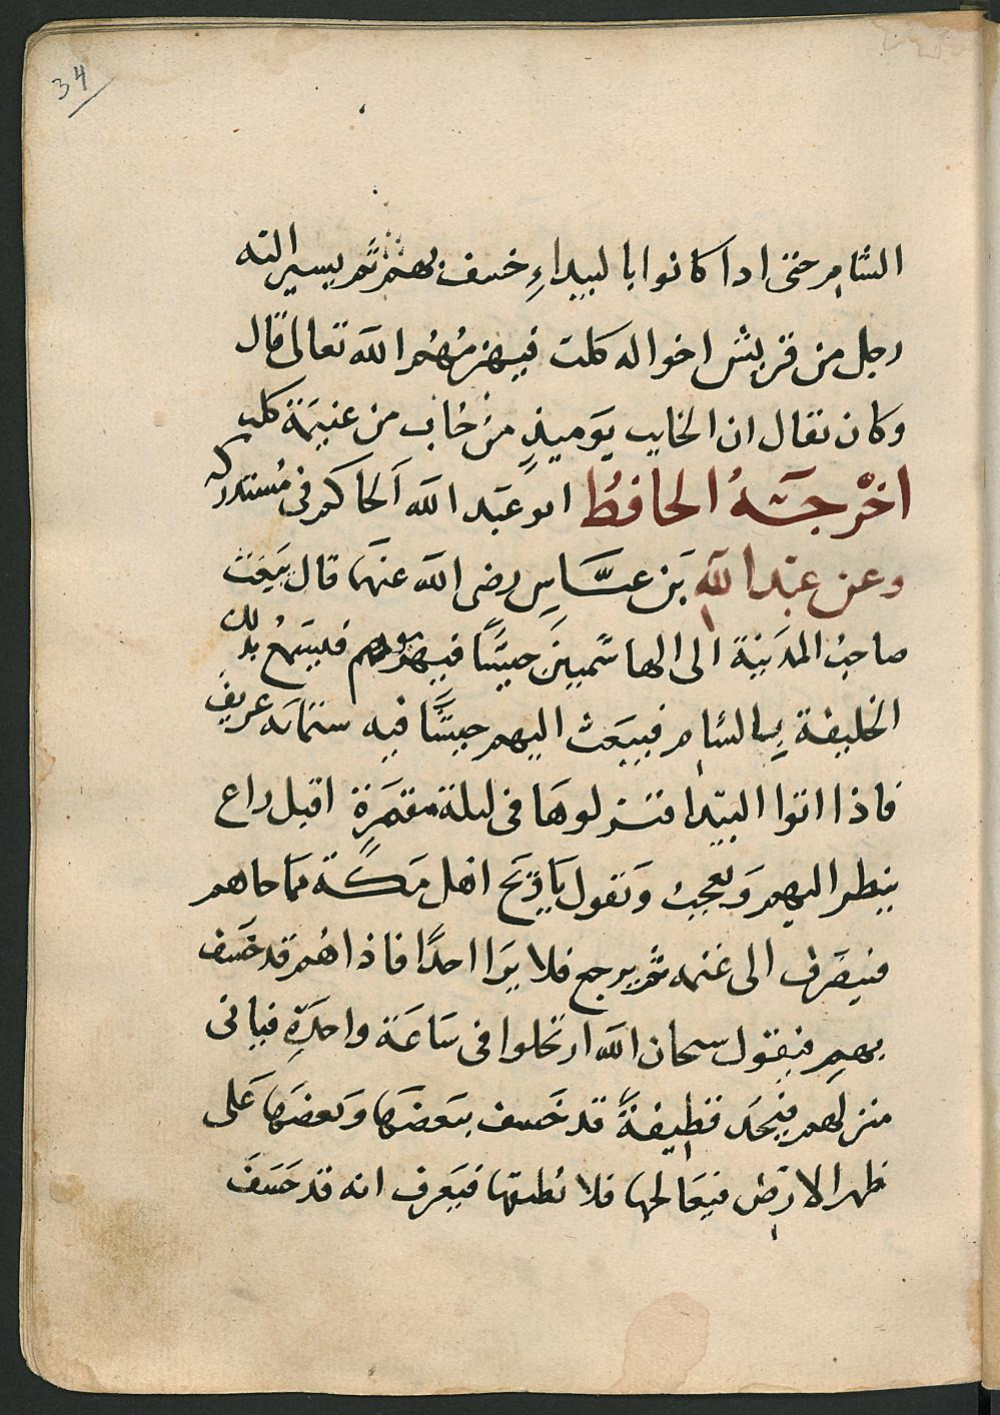 34
الشام حتى اذا كانوا بالبيداءِ خسف بهم ثم يسير اليه
رجل من قريش اخواله كلب فيهزمُهُم الله تعالى قال
وكان يقال ان الخايب يَوميذٍ مَنْ خَاب من غنيمَة كلب
اخْرجَهُ الحافظُ ابو عَبد الله الحاكم فى مُستدركه
وعن عبْد اللهِ بَن عبَّاسٍ رضى الله عنهما قال يَبعَث
صاحبُ المدَينة الى الهاشميينَ جيشًا فيهزموهم فيسمعُ بذلك
الخليفة بالشام فيبعَث اليهم جيشًا فيه ستمائه عريفٍ
فاذا اتوا البيَدا فنزلوهَا فى ليلة مقمرَةٍ اقبل راع
ينظر اليهم وَيعجبُ وَيقول يَا وَيَح اهل مَكّة مَا جاهم
فينصَرف الى غنمه ثم يرجع فلا يَرَا احدًا فاذا هُم قد خسَف
بهم فيقول سبحان الله ارتحلوا فى سَاعَة واحدَةٍ فياتى
منزلهم فيجَد قطيفةً قد خَسف ببَعضهَا وَبعضهَا عَلى
ظهر الارض فيعَالجها فلا يُطيقها فيَعرف انه قد خَسَفَ